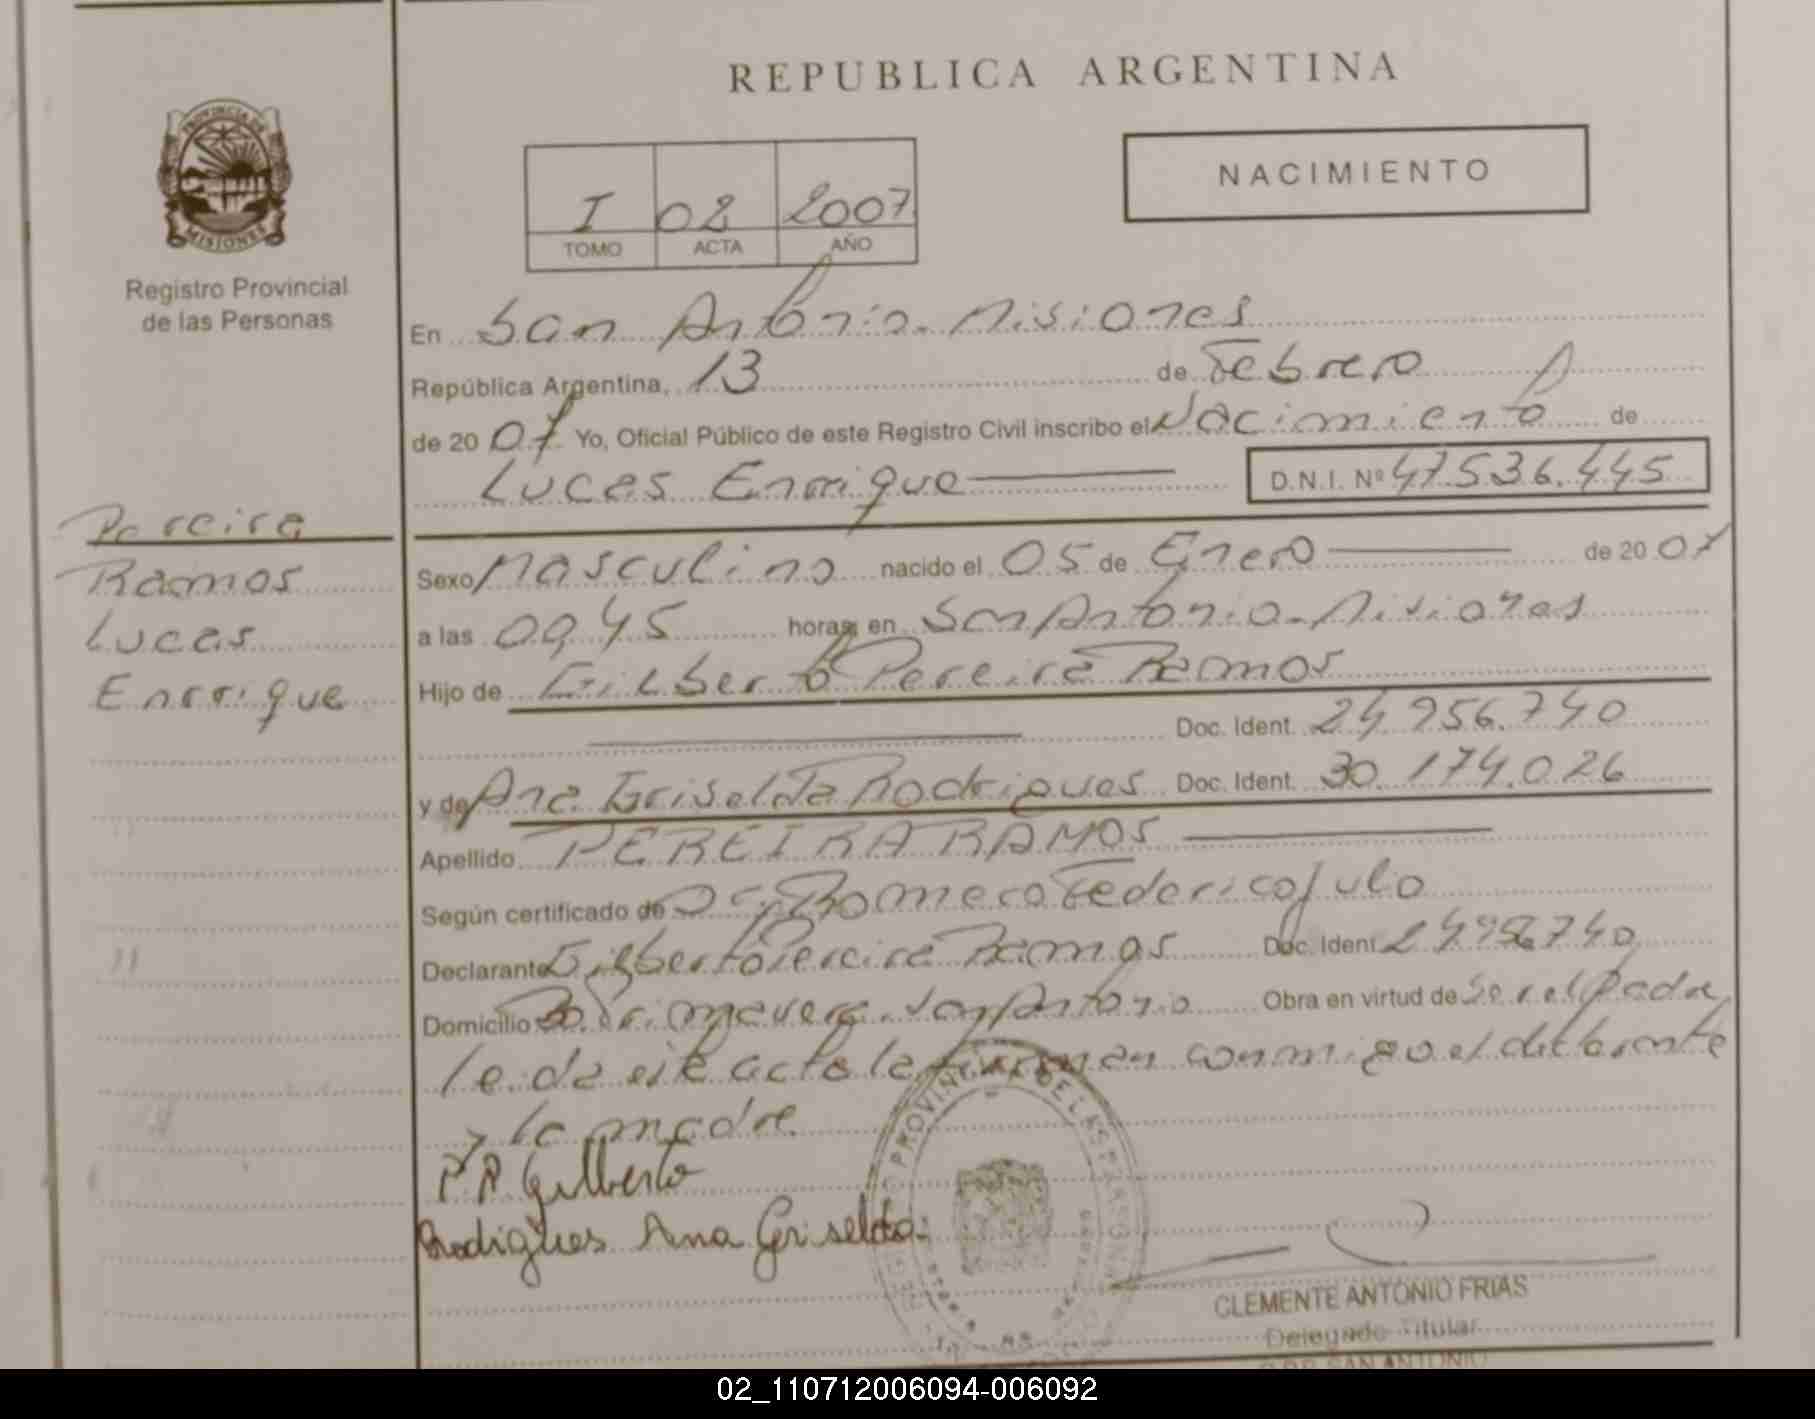 REPUBLICA ARGENTINA
PROVINCIA DE
MISIONES
Registro Provincial
de las Personas
I 02 2007
TOMO ACTA AÑO
NACIMIENTO
En San Antonio. Misiones
República Argentina, 13 de Febrero
de 20 07 Yo, Oficial Público de este Registro Civil inscribo el Nacimiento de
Lucas Enrrique D.N.I. Nº 47.536.445
Pereira
Ramos
Lucas
Enrrique
Sexo Masculino nacido el 05 de Enero de 20 07
a las 00,45 horas, en San Antonio. Misiones
Hijo de Gilberto Pereira Ramos
Doc. Ident. 24.956.740
y de Ana Griselda Rodrigues Doc. Ident. 30.174.026
Apellido PEREIRA RAMOS
Según certificado de Dr. Romero Federico Julo
Declarante Gilberto Pereira Ramos Doc. Ident 24956740
Domicilio Bo. Primavera. San Antonio Obra en virtud de Ser el Padre
leida este acta la firman conmigo el declarante
y la madre.
P R Gilberto
Rodrigues Ana Griselda.
CLEMENTE ANTONIO FRIAS
Delegado Titular
SAN ANTONIO
02_110712006094-006092